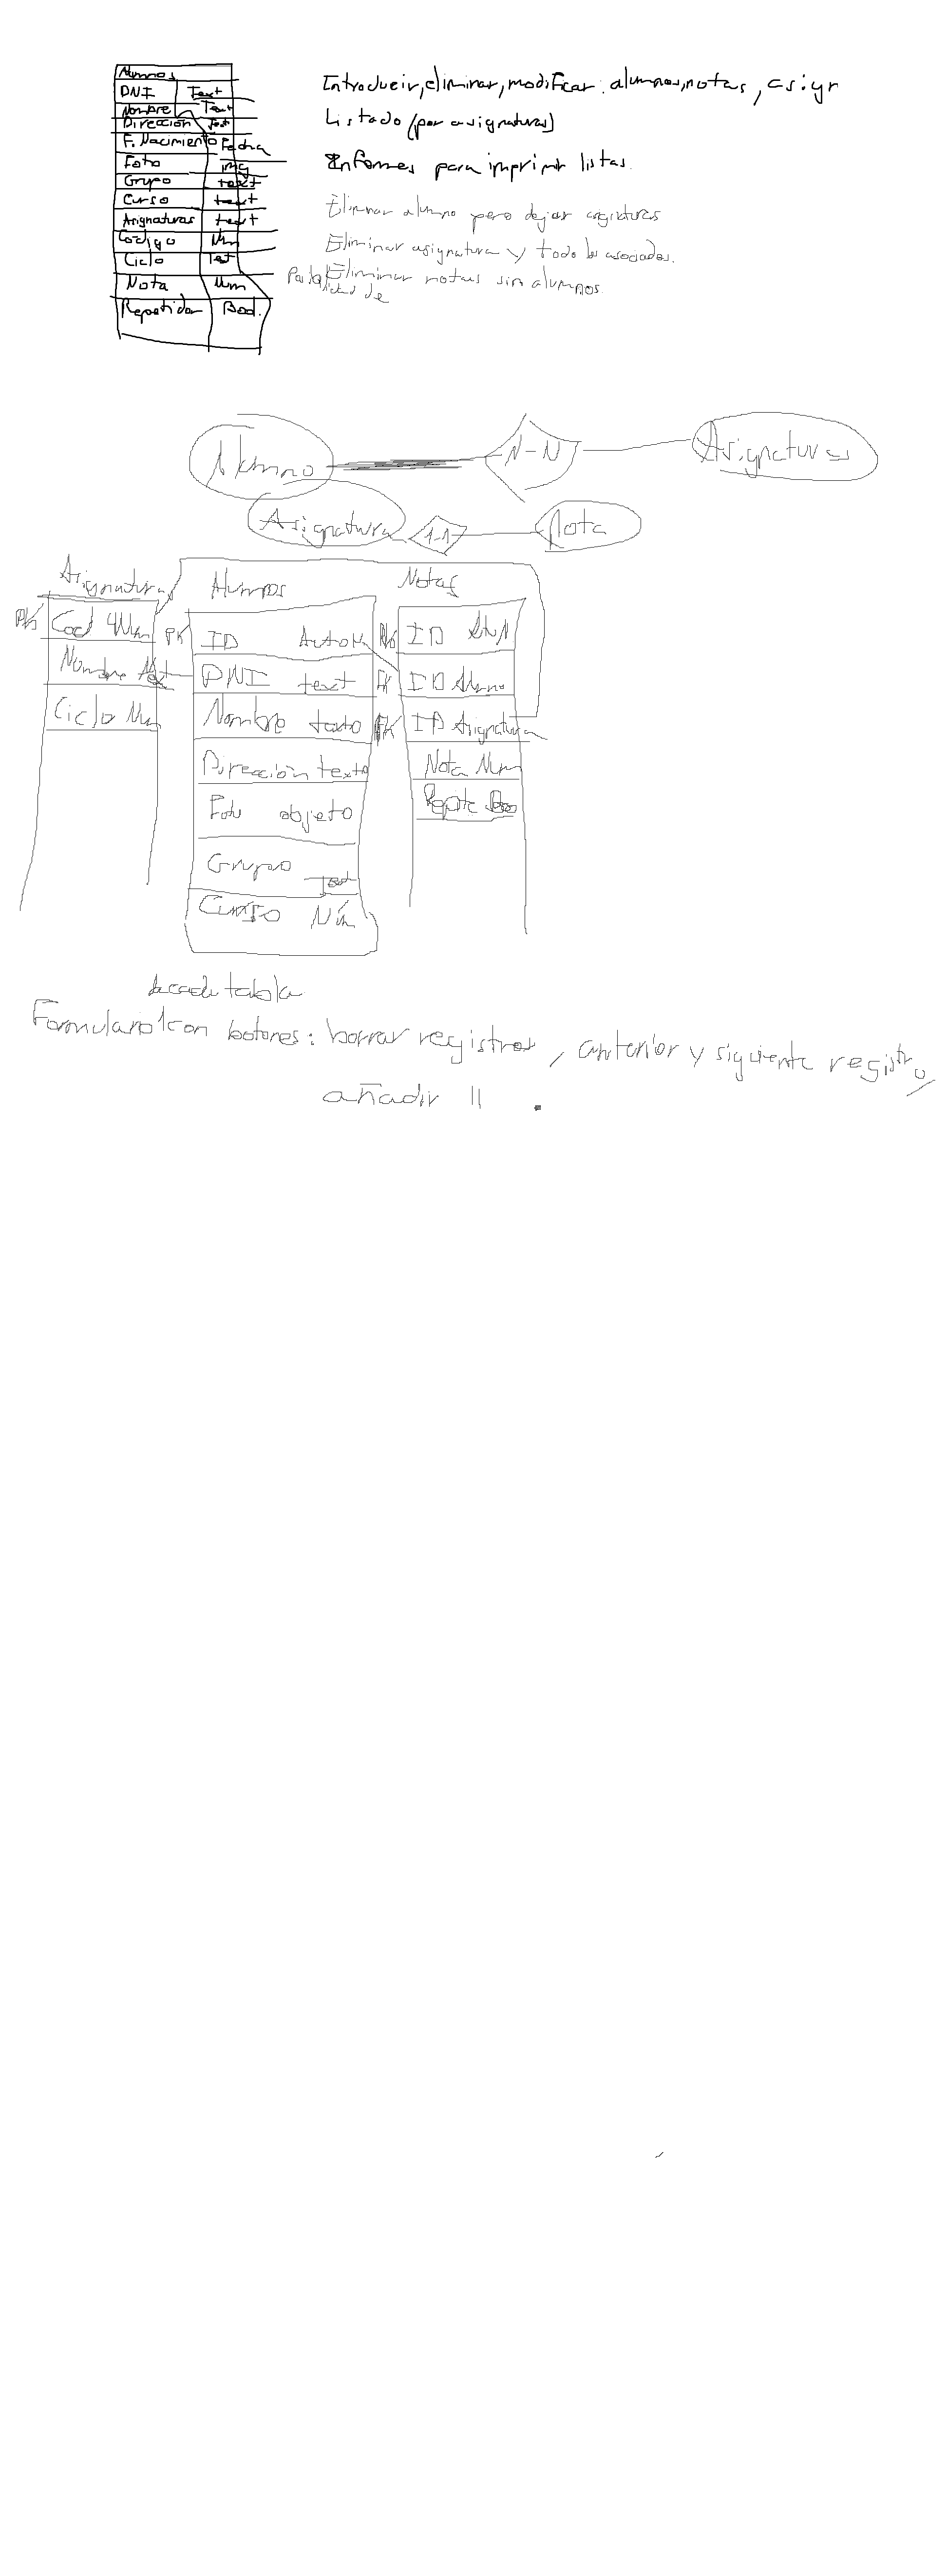 Alumnos
DNI Text
Nombre Text
Dirección Text
F. Nacimiento Fecha
Foto img
Grupo text
Curso text
Asignaturas text
Código Num
Ciclo Text
Nota Num
Repetidor Bool.
Introducir, eliminar, modificar: alumnos, notas, asigr
Listado (por asignaturas)
Informes para imprimir listas.
Eliminar alumno pero dejar asignaturas
Eliminar asignatura y todo los asociados.
Eliminar notas sin alumnos.
Alumno N-N Asignaturas
Asignatura 1-1 Nota
Asignaturas
PK Cod Num
Nombre Text
Ciclo Num
Alumnos
PK ID AutoN
DNI text
Nombre texto
Dirección texto
Foto objeto
Grupo Text
Curso Núm
Notas
PK ID AutN
FK ID Alumno
FK ID Asignatura
Nota Num
Repite Boo
de cada tabla
Formulario con botones: borrar registros, anterior y siguiente registro,
añadir "